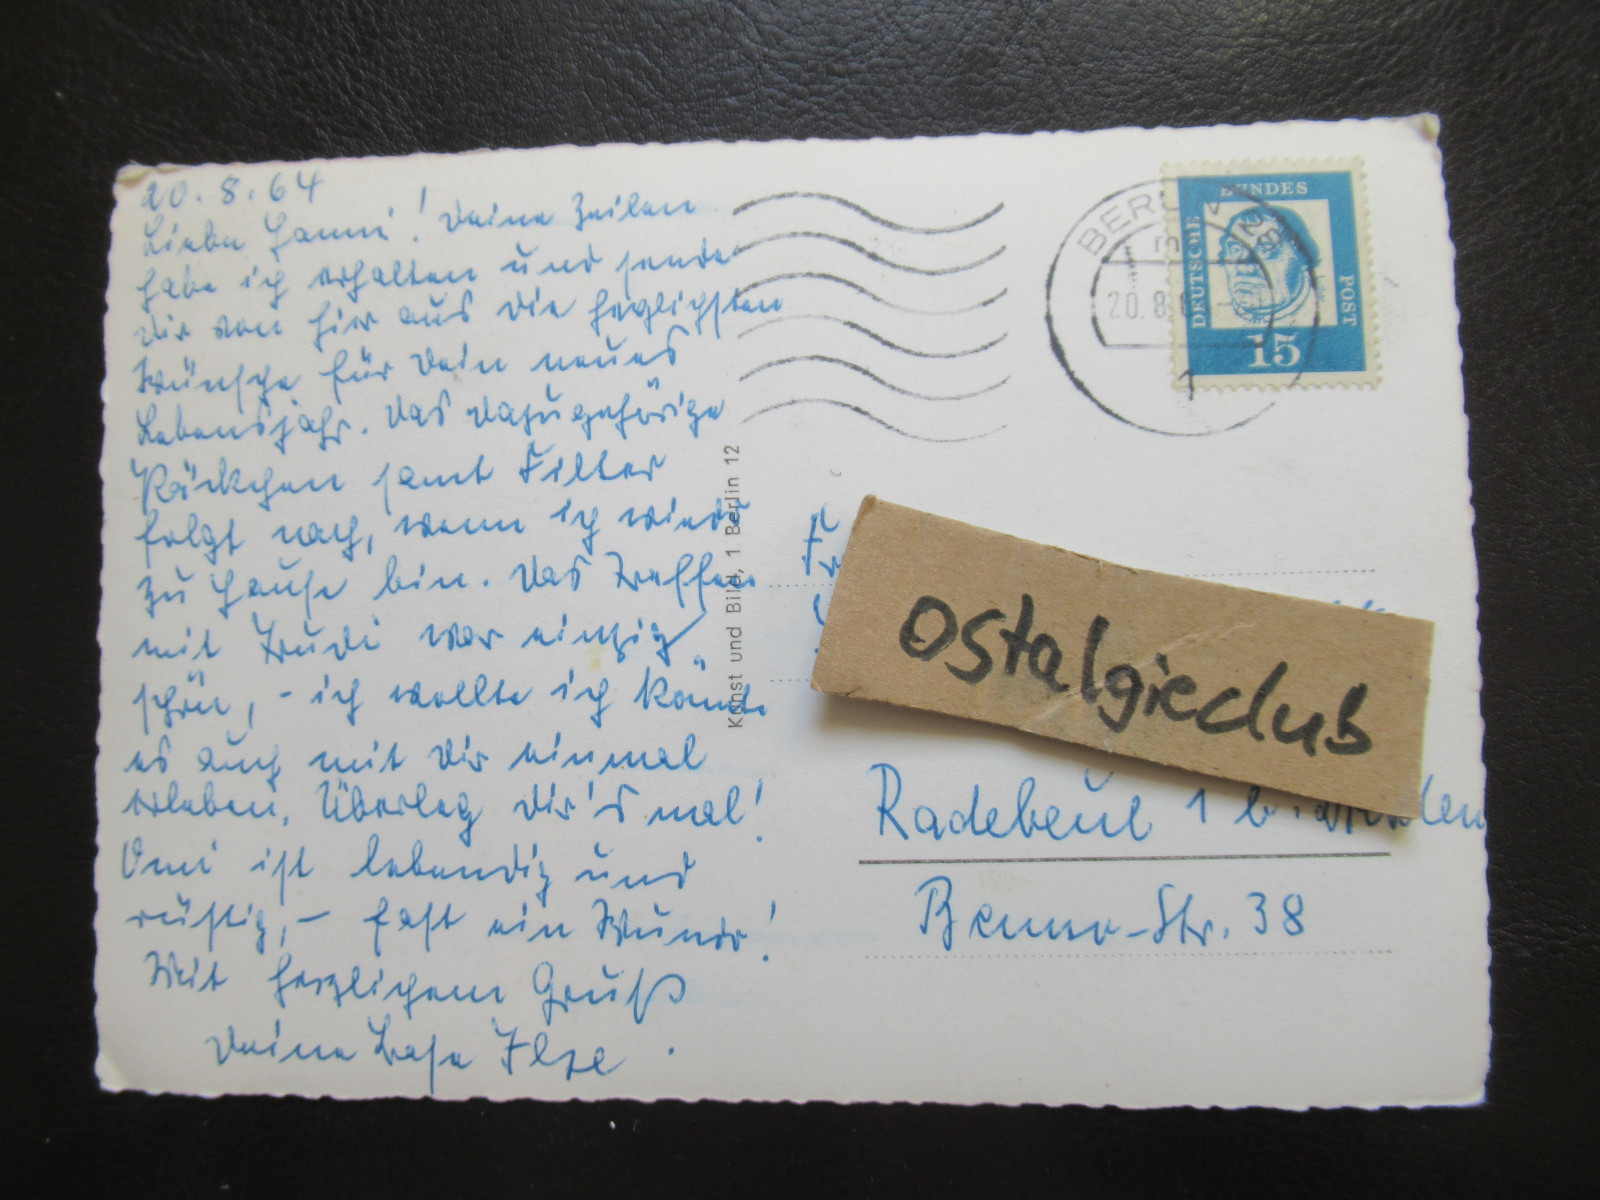 20.8.64
Liebe Hanni! Deine Zeilen
habe ich erhalten und sende
Dir von hier aus die herzlichsten
Wünsche für Dein neues
Lebensjahr. Das dazugehörige
Päckchen samt Filter
folgt nach, wenn ich wieder
zu Hause bin. Das Treffen
mit Trudi war einzig
schön, - ich wollte ich könnte
es auch mit Dir einmal
erleben. Überleg Dir's mal!
Omi ist lebendig und
rüstig, - fast ein Wunder!
Mit herzlichem Gruß
Deine Base Ilse.
Kunst und Bild, 1 Berlin 12
BERLIN
20.8.
1
DEUTSCHE BUNDES POST
15
ostalgieclub
Radebeul 1 b. Dresden
Benno-Str. 38